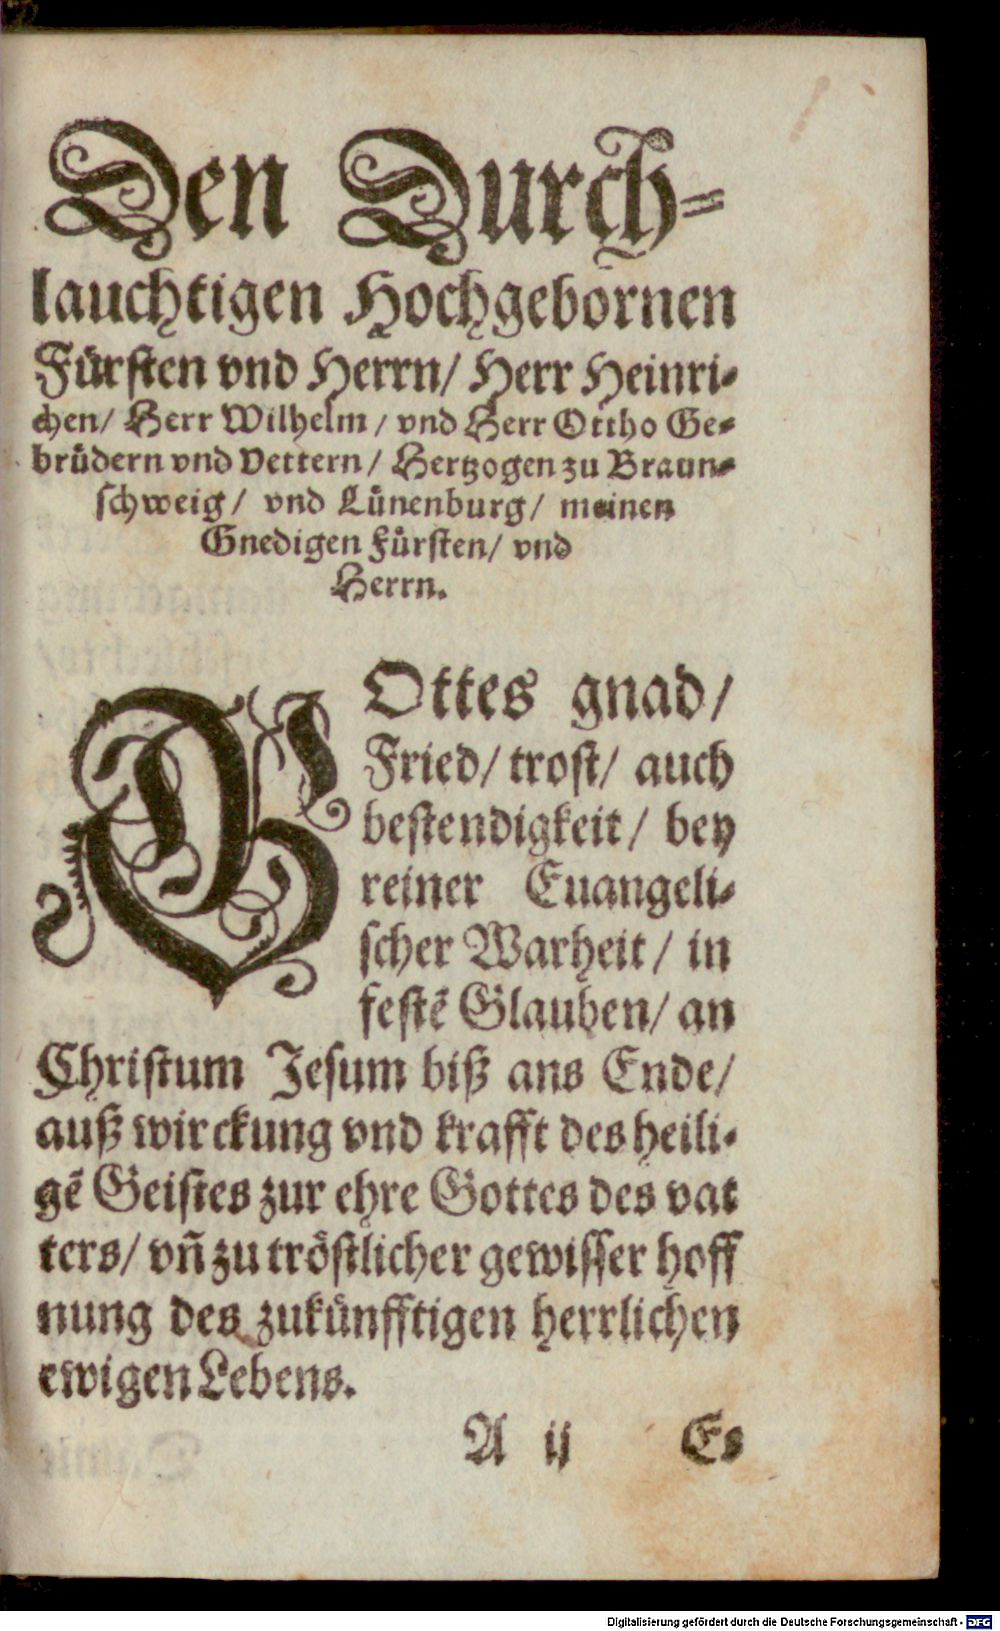 Den Durch-
lauchtigen Hochgebornen
Fürsten vnd Herrn/ Herr Heinri-
chen/ Herr Wilhelm/ vnd Herr Ottho Ge-
brüdern vnd Vettern/ Hertzogen zu Braun-
schweig/ vnd Lünenburg/ meinen
Gnedigen Fürsten/ vnd
Herrn.
GOttes gnad/
Fried/ trost/ auch
bestendigkeit/ bey
reiner Euangeli-
scher Warheit/ in
festẽ Glauben/ an
Christum Jesum biß ans Ende/
auß wirckung vnd krafft des heili-
gẽ Geistes zur ehre Gottes des vat
ters/ vñ zu tröstlicher gewisser hoff
nung des zukünfftigen herrlichen
ewigen Lebens.
A ij Es
Digitalisierung gefördert durch die Deutsche Forschungsgemeinschaft - DFG